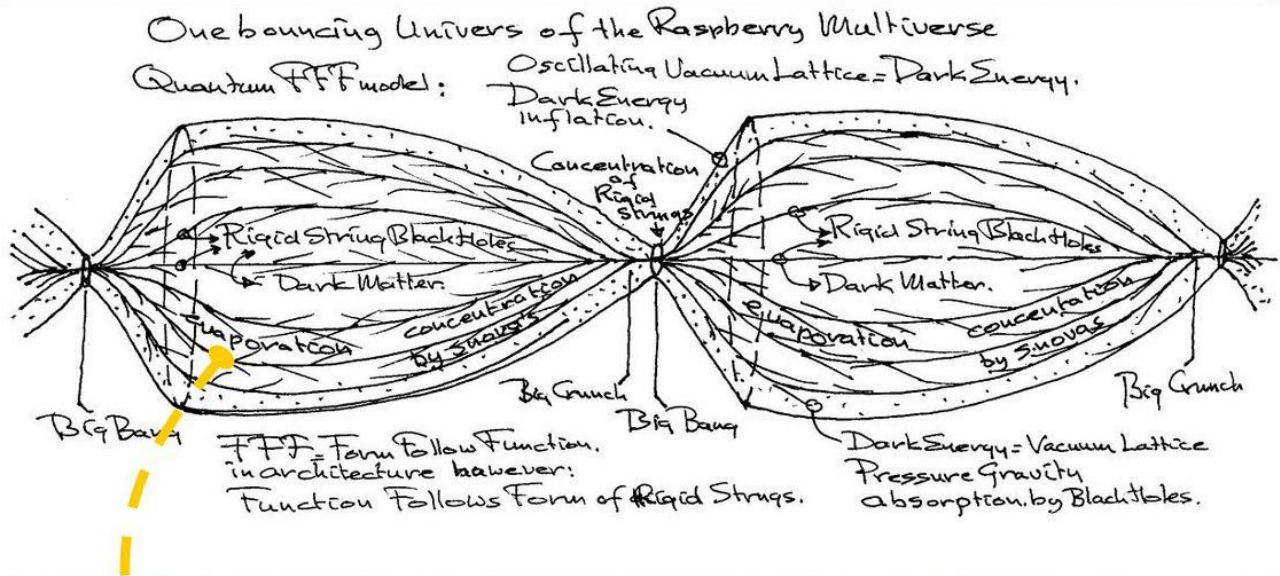 One bouncing Univers of the Raspberry Multiverse
Quantum FFF model:
Oscillating Vacuum Lattice = Dark Energy.
Dark Energy
inflation.
Concentration
of
Rigid
strings
Rigid String Black Holes
Dark Matter.
Evaporation
concentration
by snova's
Rigid String Black Holes
Dark Matter.
evaporation
concentration
by snovas
Big Bang
Big Crunch
Big Bang
Big Crunch
FFF = Form Follow Function.
in architecture however:
Function Follows Form of Rigid Strngs.
Dark Energy = Vacuum Lattice
Pressure Gravity
absorption by Black Holes.